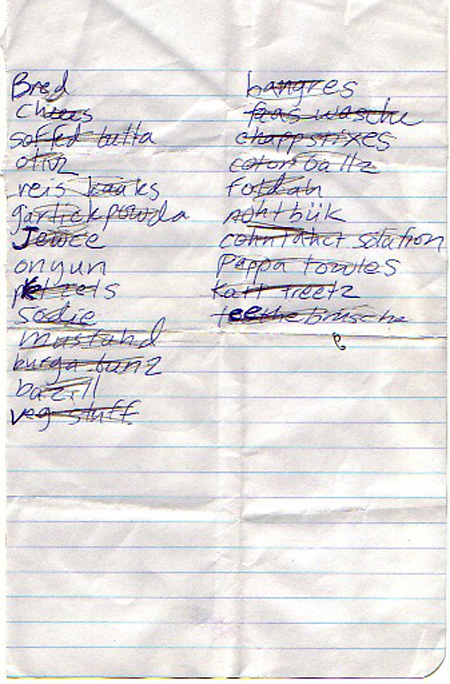 Bred
Chees
soffed butta
olivz
reis kaaks
garlickpowda
Jewce
onyun
pretzels
Sodie
mustahd
burga bunz
bazill
veg stuff
hangres
feas wasche
chappstixes
coton ballz
Foldah
nohtbük
cohntahct solution
pappa towles
Katt treetz
teethe brusche